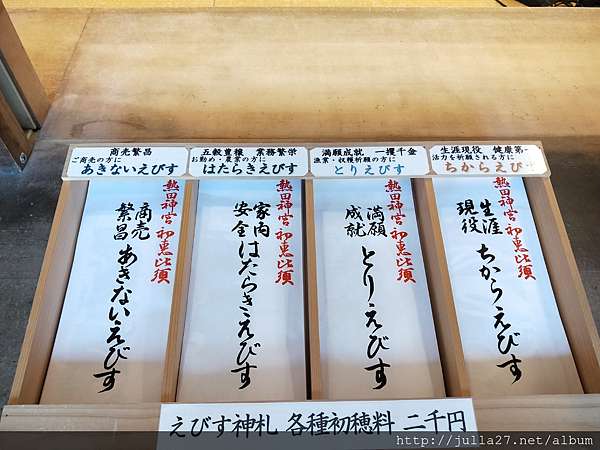 商売繁昌
ご商売の方に
あきないえびす
五穀豊穣 業務繁栄
お勤め・農業の方に
はたらきえびす
満願成就 一攫千金
漁業・収穫祈願の方に
とりえびす
生涯現役 健康第一
活力を祈願される方に
ちからえびす
熱田神宮 初恵比須
商売繁昌 あきないえびす
熱田神宮 初恵比須
家内安全 はたらきえびす
熱田神宮 初恵比須
満願成就 とりえびす
熱田神宮 初恵比須
生涯現役 ちからえびす
えびす神札 各種初穂料 二千円
http://julla27.net/album